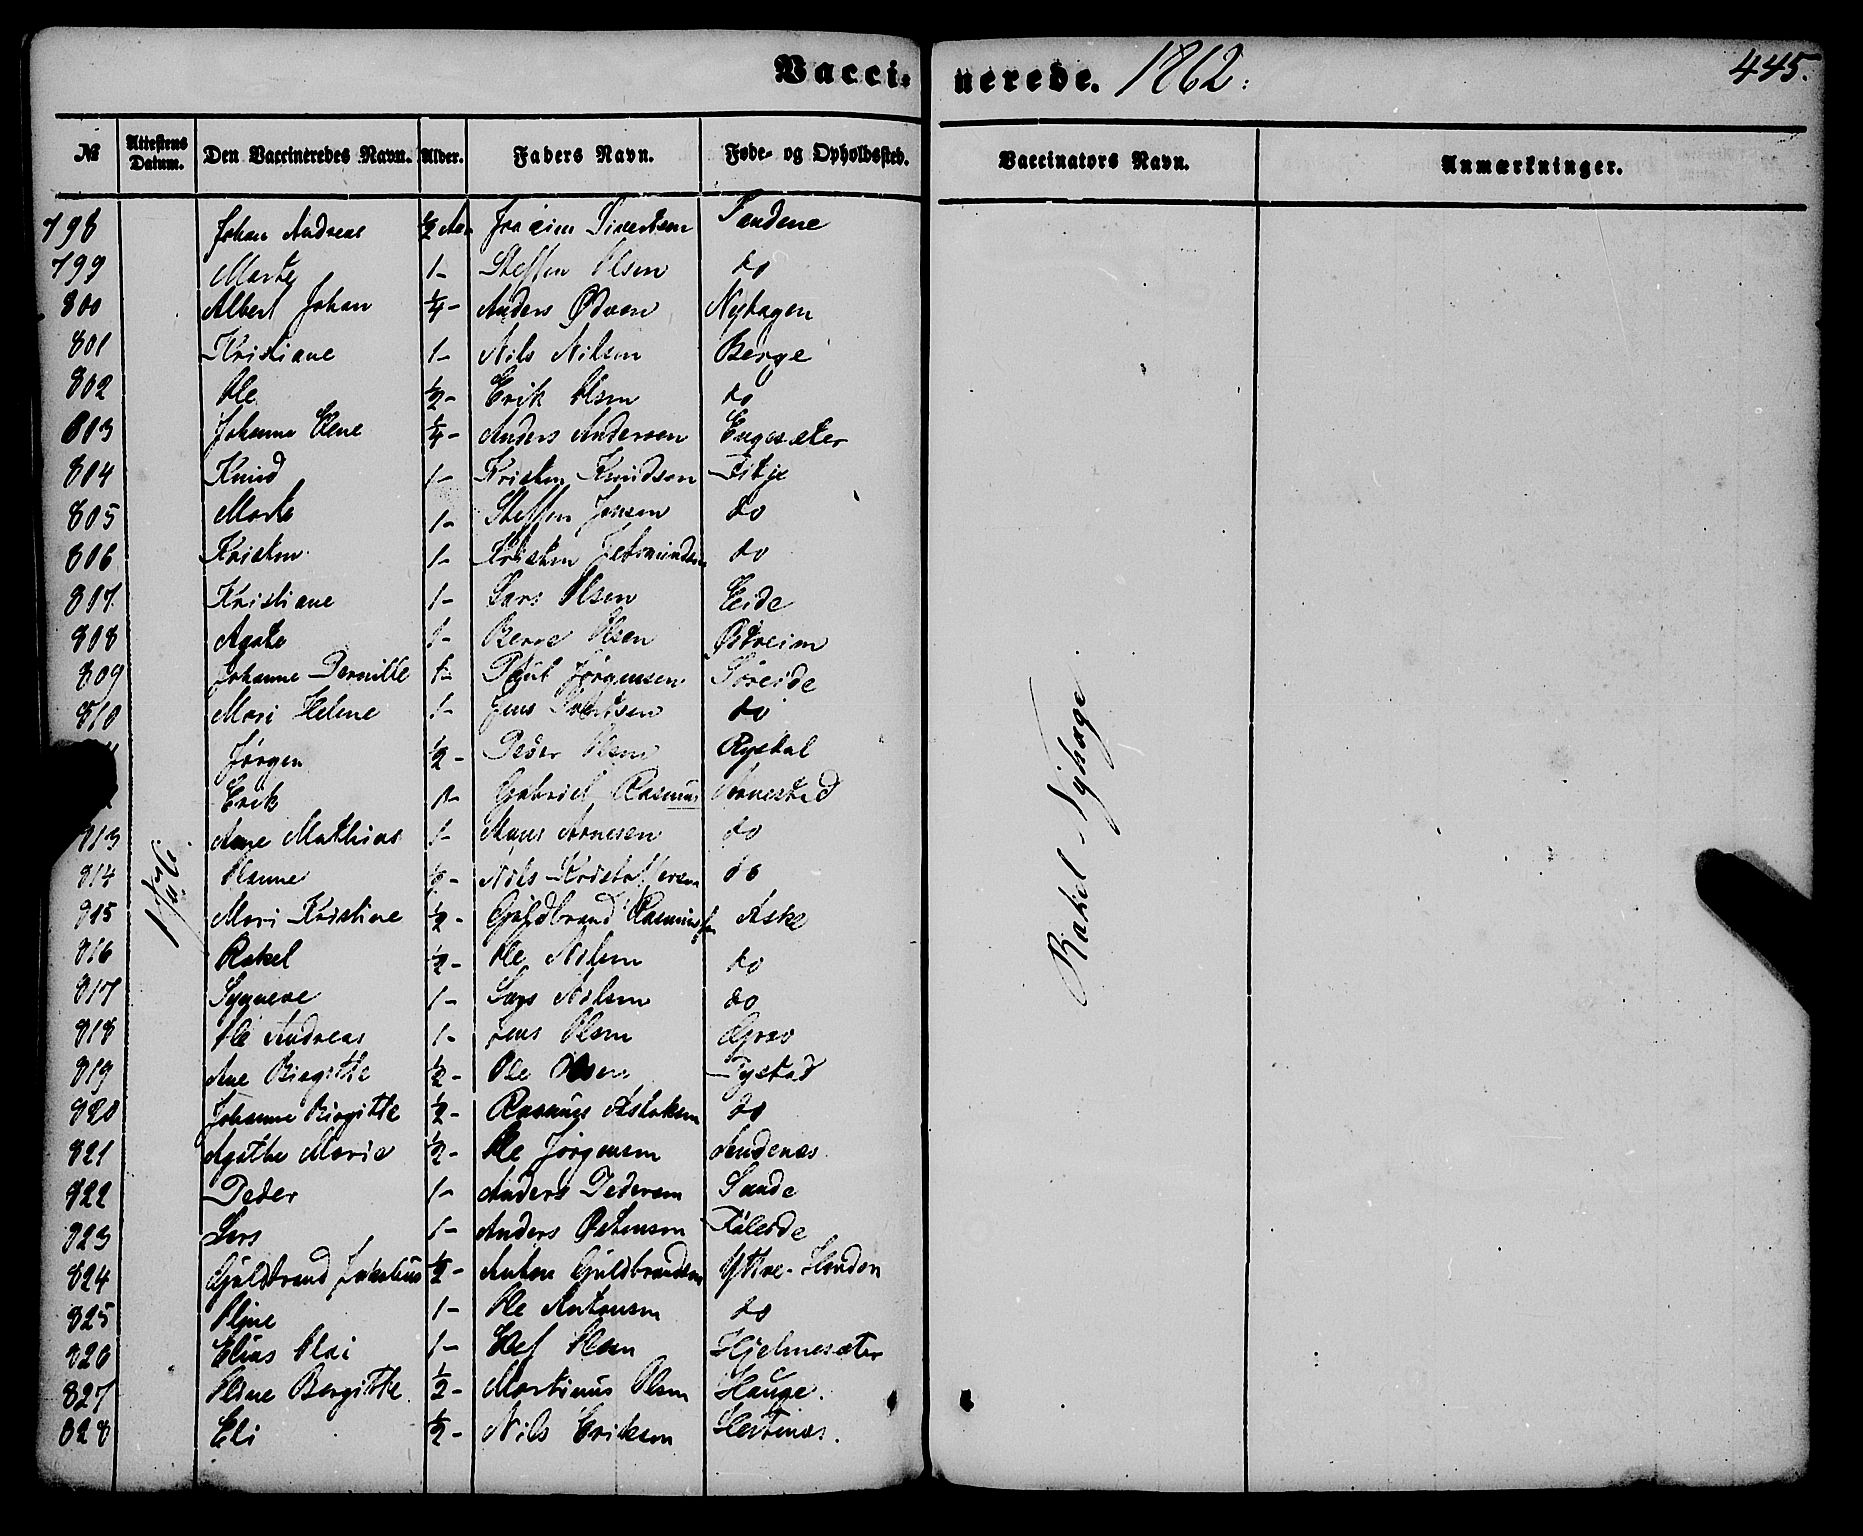 Vaccinerede. 1862.
445.
№ Attestens Datum. Den Vaccineredes Navn. Alder. Faders Navn. Føde- og Opholdssted. Vaccinators Navn. Anmærkninger.
798 Johan Andreas ½ Aar Sivertsen
799 Marte 1- Steffen Olsen do
800 Albert Johan ¼- Anders Nyhagen
801 Kristiane 1- Nils Nilsen Berge
802 Ole ½- Erik Olsen do
803 Johanne ¼- Anders Andersen Engesæter
804 Knud 1- Kristen Knudsen Fitje
805 Marte 1- Steffen Jensen do
806 Kristen 1- Kristen do
807 Kristiane 1- Lars Olsen Eide
808 Agate 1- Olsen Østreim
809 Johanne Pernille Jørgensen Søreide
810 Mari Helene 1- Jens do
Jørgen ½- Peder Olsen Rystal
Erik Gabriel Rasmus
813 Ane Mathias 1- Arnesen do
814 Hanne Nils Kristoffersen do
815 Mari Kristine ½- Guldbrand Rasmussen Aske
816 Rakel ½- Ole Nilsen do
817 Synneve 1- Lars Nilsen do
818 Ole Andreas 1- Jens Olsen
819 Ane Birgitte ½- Ole Olsen Tystad
820 Johanne Birgitte ½- Rasmus do
821 Agathe Marie ½- Ole Jørgensen
822 Peder 1- Anders Pedersen Sande
823 Lars 1- Anders
824 Guldbrand ½- Anton Guldbrandsen Yttre-
825 Oline 1- Ole Antonsen do
826 Elias 1- Olsen Hjelmesæter
827 Oline Bergitte ½- Martinus Olsen Hauge.
828 Eli ½- Nils Eriksen
Rakel Nyhage